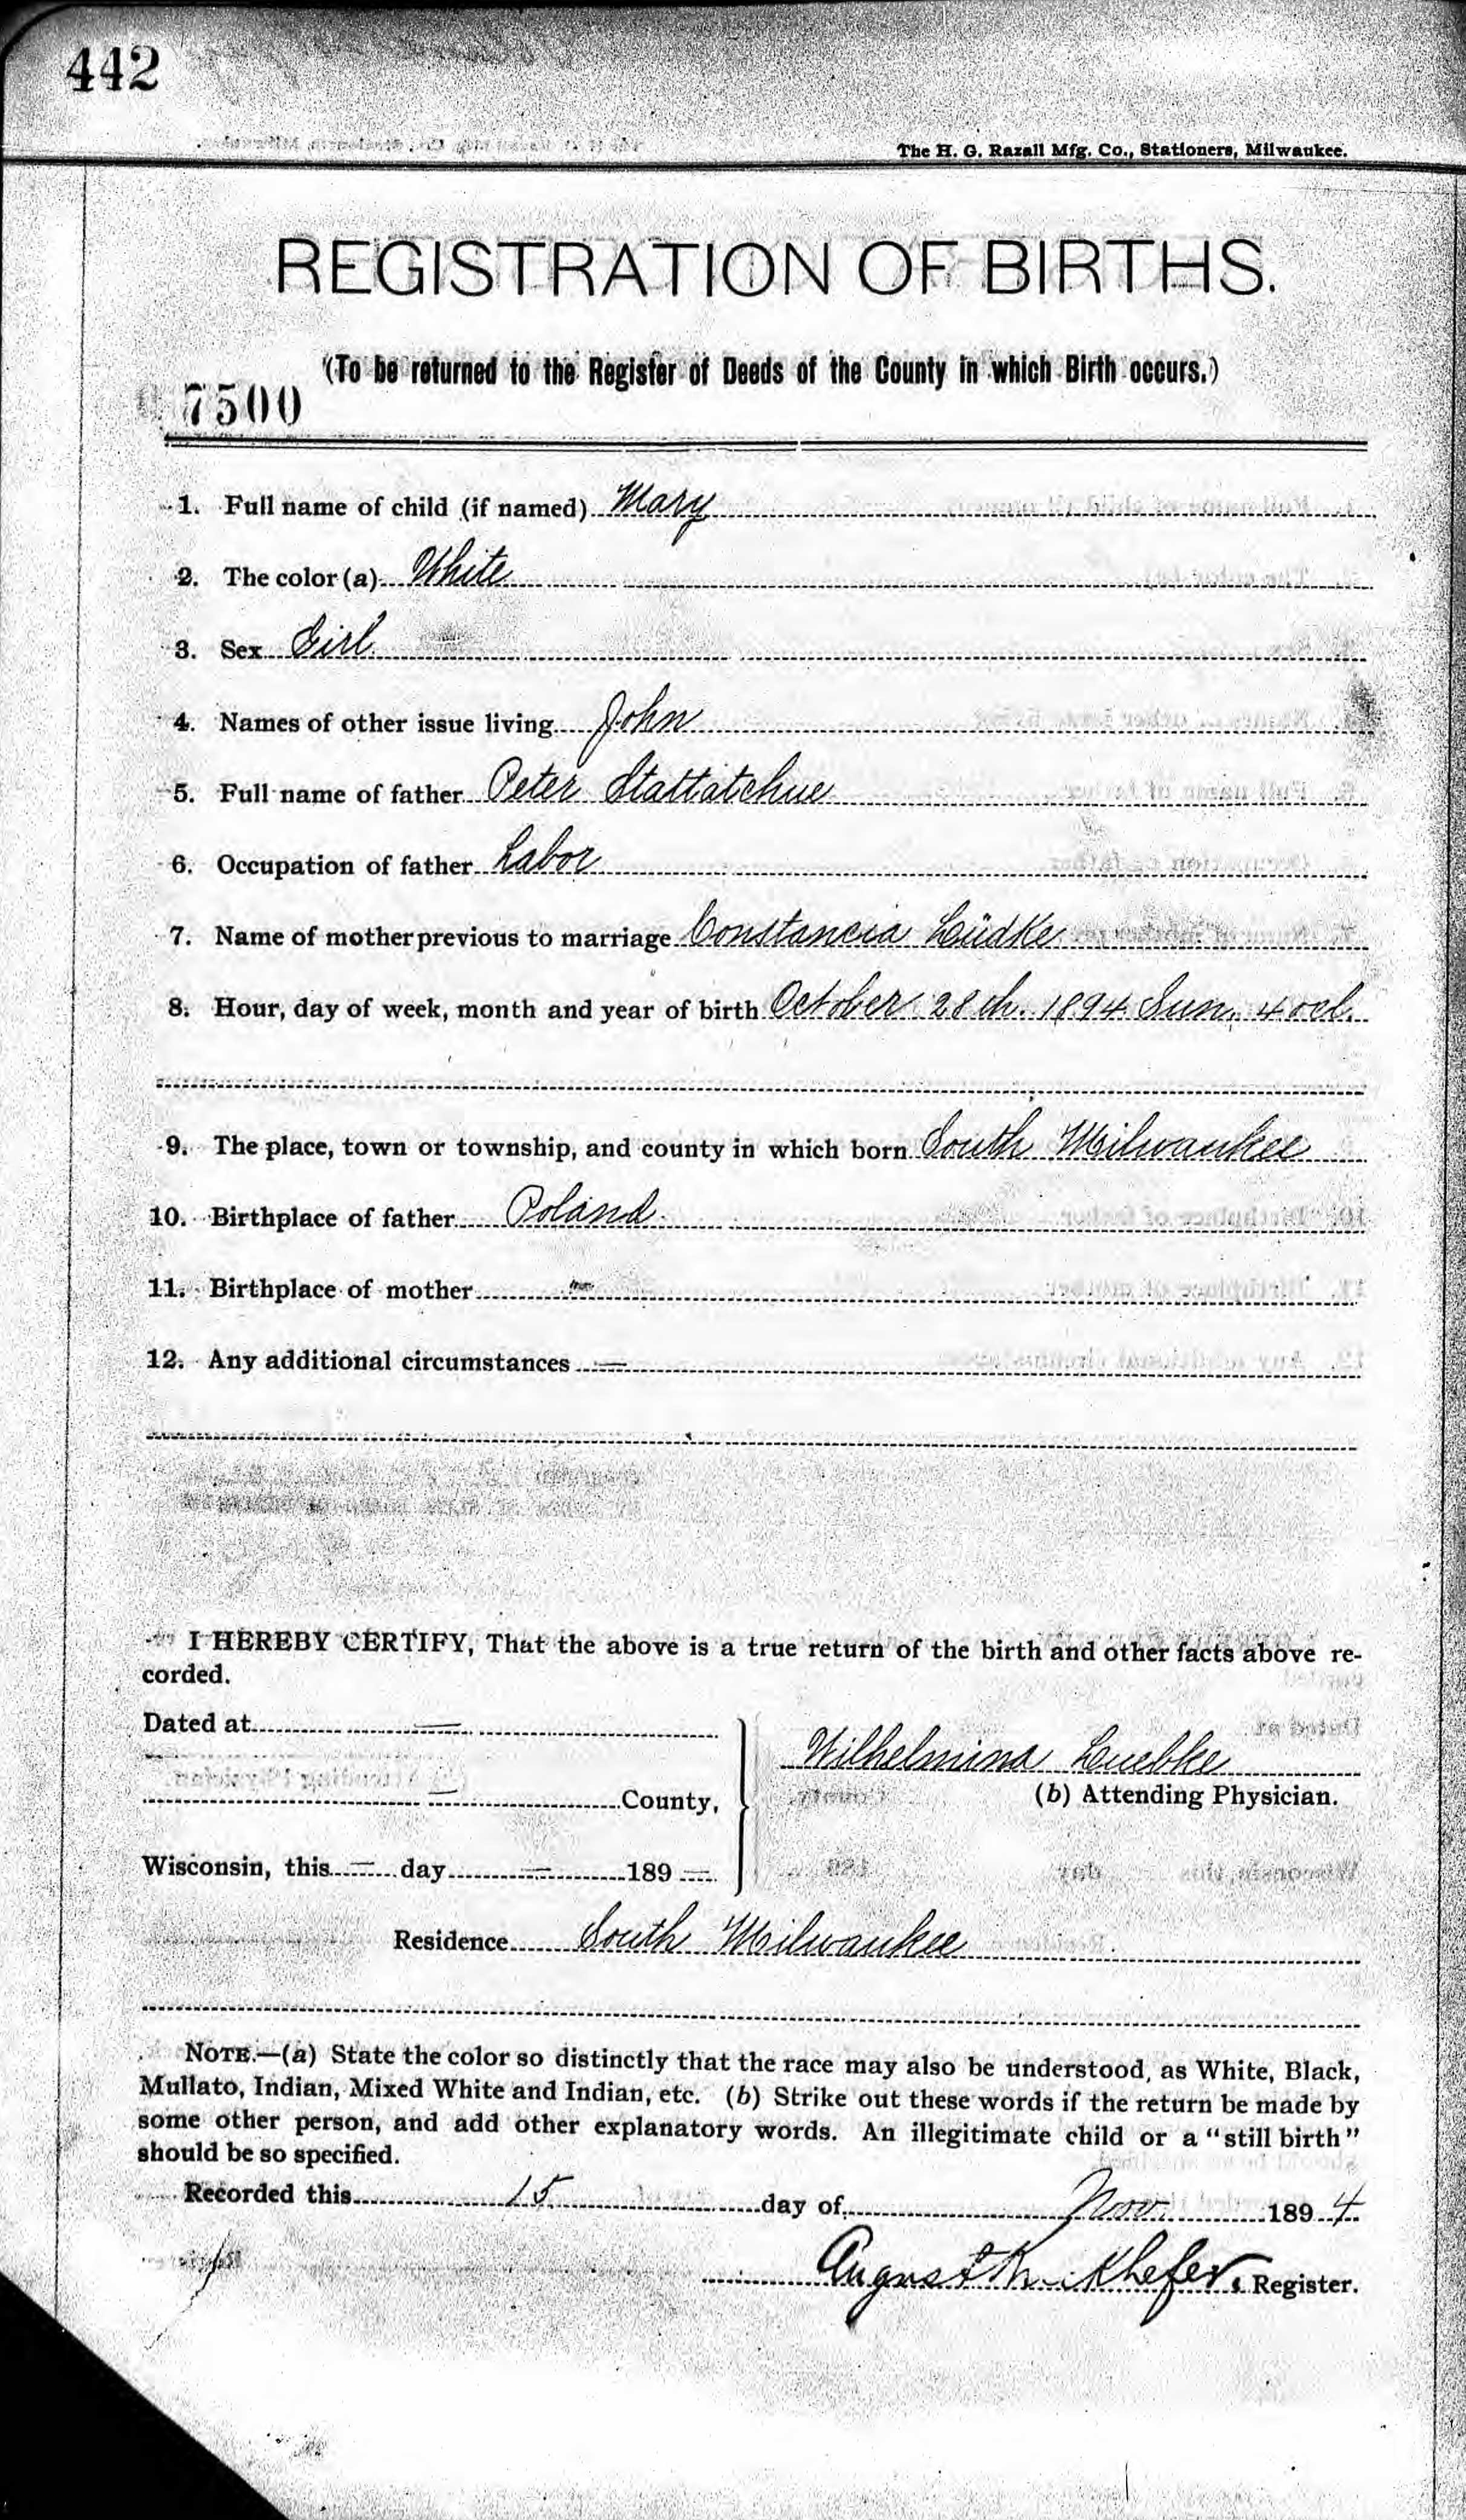 442
The H. G. Razall Mfg. Co., Stationers, Milwaukee.
REGISTRATION OF BIRTHS.
(To be returned to the Register of Deeds of the County in which Birth occurs.)
7500
1. Full name of child (if named) Mary
2. The color (a) White
3. Sex Girl
4. Names of other issue living John
5. Full name of father Peter Stattatchue
6. Occupation of father Labor
7. Name of mother previous to marriage Constancia Lüdke
8. Hour, day of week, month and year of birth October 28th. 1894 Sun, 4 ocl.
9. The place, town or township, and county in which born South Milwaukee
10. Birthplace of father Poland
11. Birthplace of mother "
12. Any additional circumstances —
I HEREBY CERTIFY, That the above is a true return of the birth and other facts above re-
corded.
Dated at —
Wilhelmina Luebke
— County,
(b) Attending Physician.
Wisconsin, this — day — 189 —
Residence South Milwaukee
NOTE.—(a) State the color so distinctly that the race may also be understood, as White, Black,
Mullato, Indian, Mixed White and Indian, etc. (b) Strike out these words if the return be made by
some other person, and add other explanatory words. An illegitimate child or a "still birth"
should be so specified.
Recorded this 15 day of Nov. 1894.
August Register.